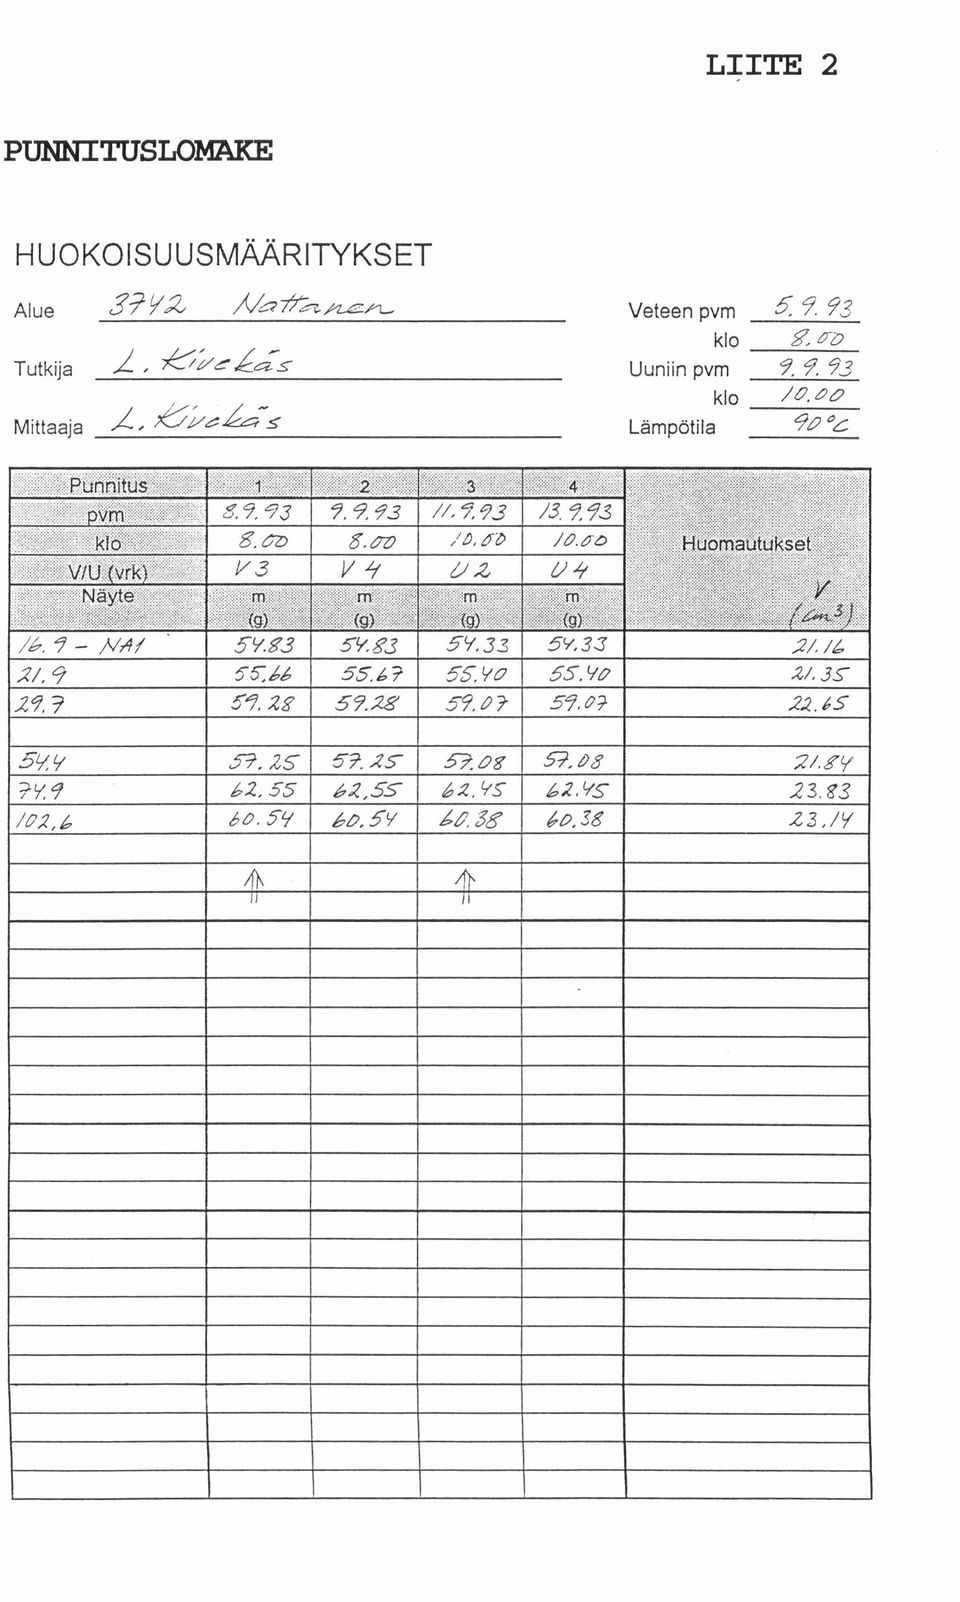 LIITE 2
PUNNITUSLOMAKE
HUOKOISUUSMÄÄRITYKSET
Alue 3742 Nattanen Veteen pvm 5.9.93
klo 8.00
Tutkija L. Kivekäs Uuniin pvm 9.9.93
klo 10.00
Mittaaja L. Kivekäs Lämpötila 90°C
Punnitus 1 2 3 4
pvm 8.9.93 9.9.93 11.9.93 13.9.93
klo 8.00 8.00 10.00 10.00 Huomautukset
V/U (vrk) V3 V4 U2 U4
Näyte m m m m V
(g) (g) (g) (g) (cm3)
16.9 - NA1 54.83 54.83 54.33 54.33 21.16
21.9 55.66 55.67 55.40 55.40 21.35
29.7 59.28 59.28 59.07 59.07 22.65
54.4 57.25 57.25 57.08 57.08 21.84
74.9 62.55 62.55 62.45 62.45 23.83
102,6 60.54 60.54 60.38 60.38 23.14